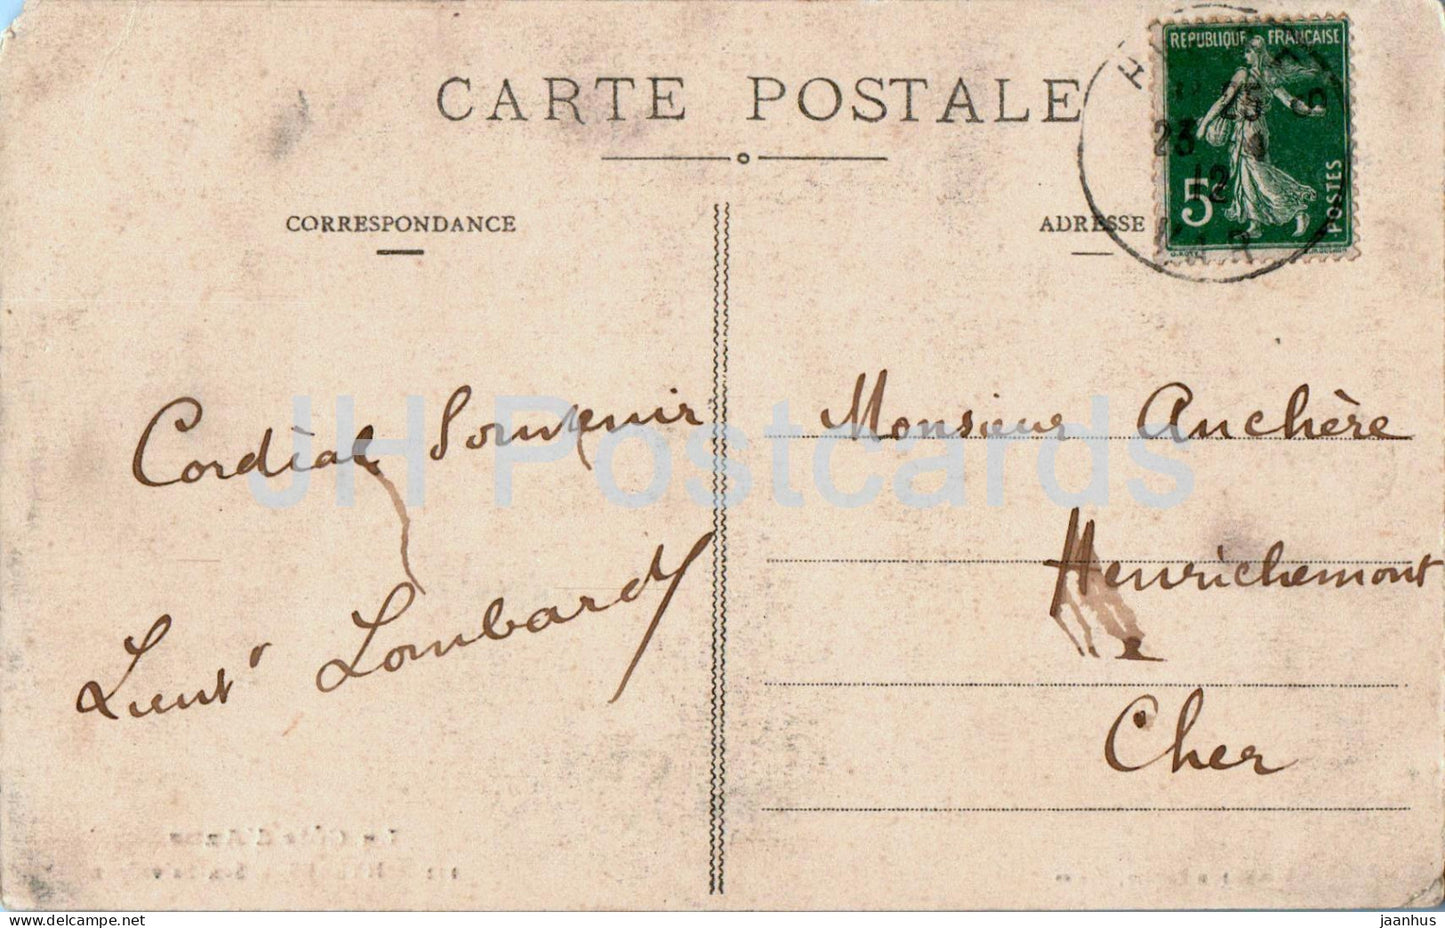 CARTE POSTALE
CORRESPONDANCE
ADRESSE
REPUBLIQUE FRANÇAISE
5c
POSTES
23
25
12
VAR
Cordial Souvenir
Lieut' Lombard
Monsieur Anchère
Henrichemont
Cher
JH Postcards
La Côte d'Azur
jaanhus
delcampe.net